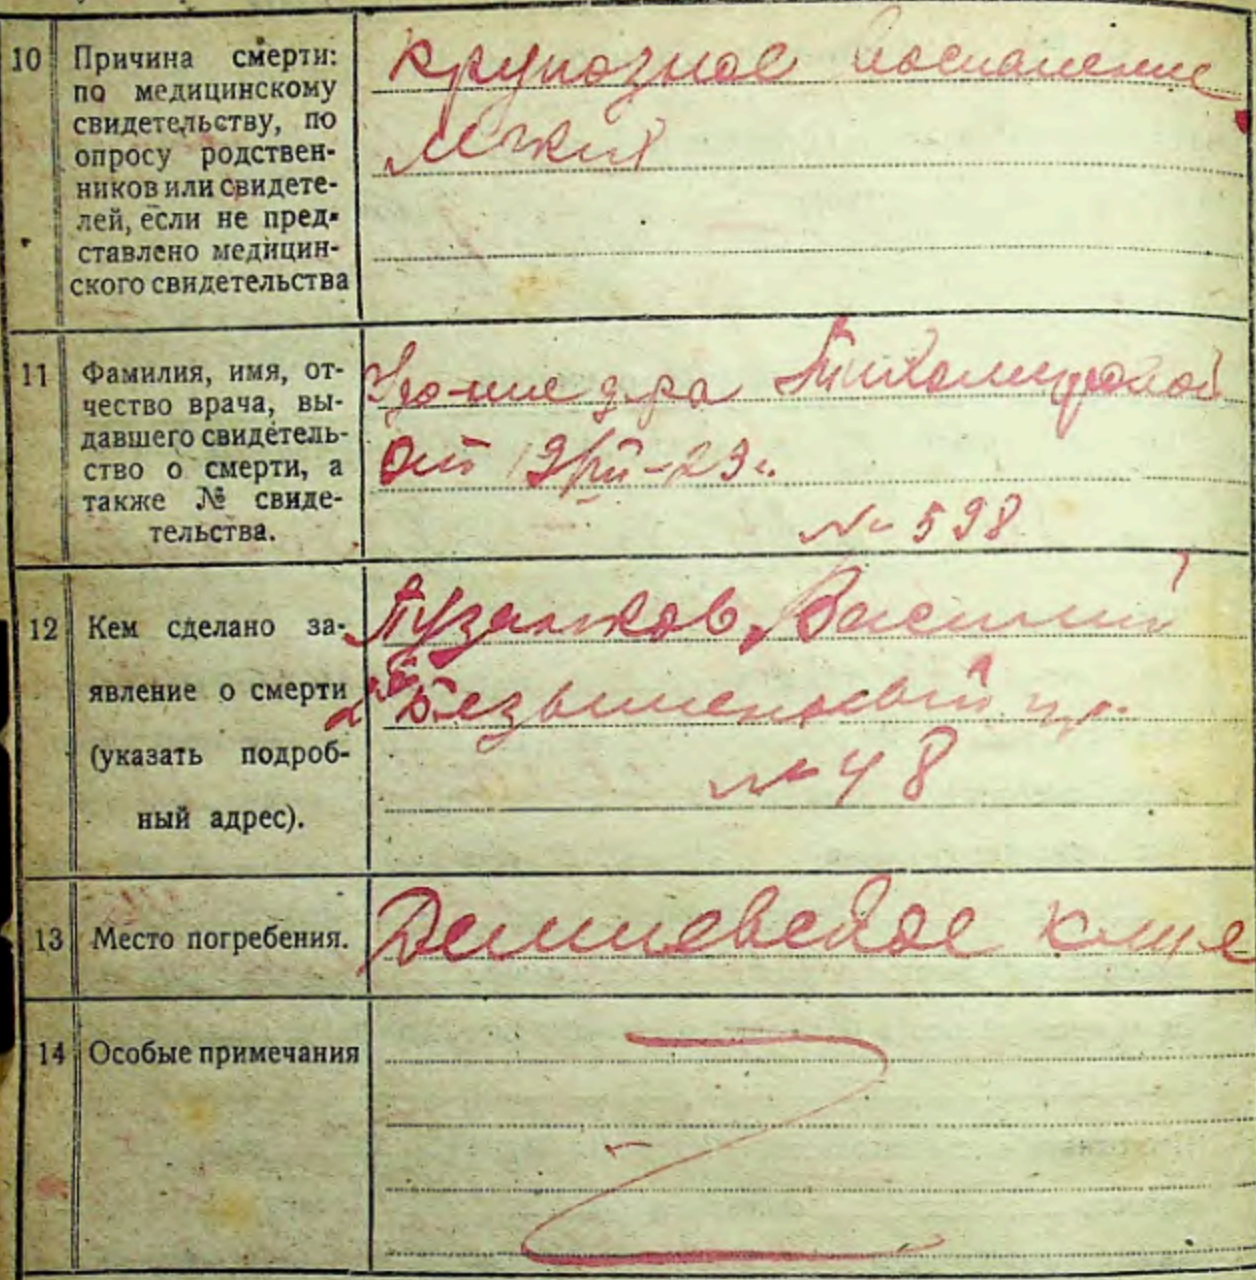 10 Причина смерти:
по медицинскому
свидетельству, по
опросу родствен-
ников или свидете-
лей, если не пред-
ставлено медицин-
ского свидетельства
Крупозное воспаление
легких
11 Фамилия, имя, от-
чество врача, вы-
давшего свидетель-
ство о смерти, а
также № свиде-
тельства.
Удо-ние д-ра Тихомировой
от 19/VII-29 г.
№ 598
12 Кем сделано за-
явление о смерти
(указать подроб-
ный адрес).
Пузанков Василий
2й Безыменный пр.
№ 48
13 Место погребения.
кл-ще
14 Особые примечания